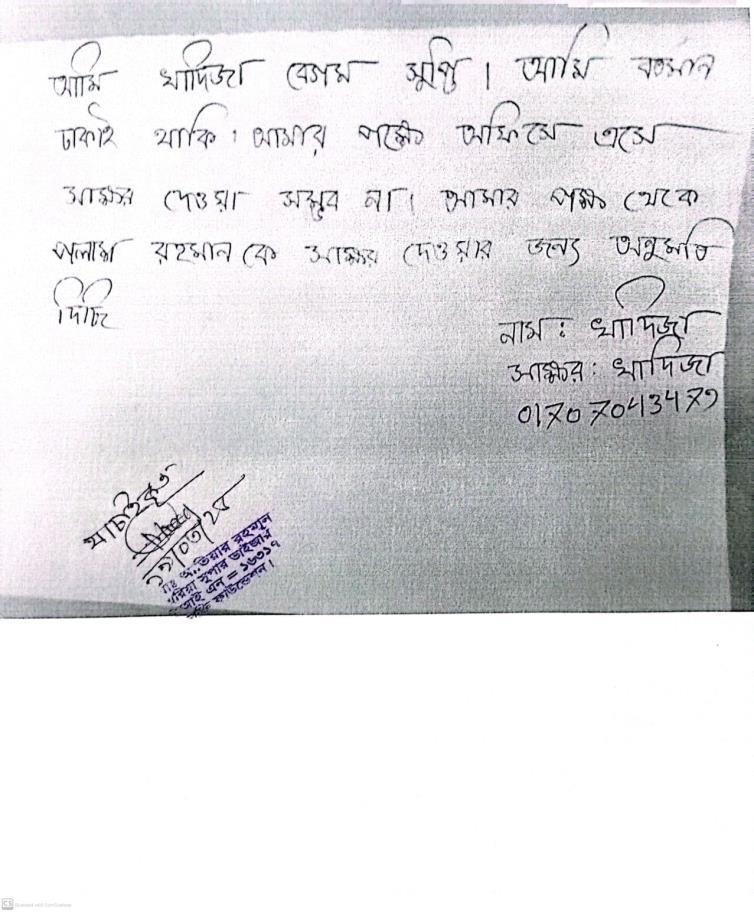 আমি খাদিজা বেগম সুপ্তি। আমি বর্তমান
ঢাকাই থাকি। আমার পক্ষে অফিসে এসে
সাক্ষর দেওয়া সম্ভব না। আমার পক্ষ থেকে
পলাশ রহমান কে সাক্ষর দেওয়ার জন্য অনুমতি
দিচ্ছি
নাম: খাদিজা
সাক্ষর: খাদিজা
01707043479
যাচাইকৃত
রহমান
এরিয়া সুপার ভাইজার
আই এন = ১৬৩১৭
ফাউন্ডেশন।
CS Scanned with CamScanner